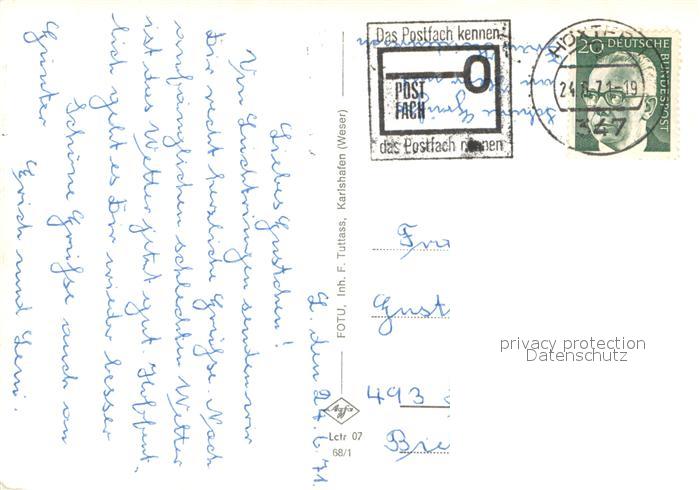 L. den 24.6.71.
Liebes Gustchen!
Von Lüchtringen senden wir
Dir recht herzliche Grüße. Nach
anfänglichen schlechten Wetter
ist das Wetter jetzt gut. Hoffent-
lich geht es Dir wieder besser
Schöne Grüße auch an
Günter Erich und Leni.
FOTU, Inh. F. Tuttass, Karlshafen (Weser)
Agfa
Lctr 07
68/1
Das Postfach kennen-
POST
FACH
das Postfach nennen
HÖXTER
24.6.71-19
347
20 DEUTSCHE
BUNDESPOST
Frau
Gust
493
privacy protection
Datenschutz